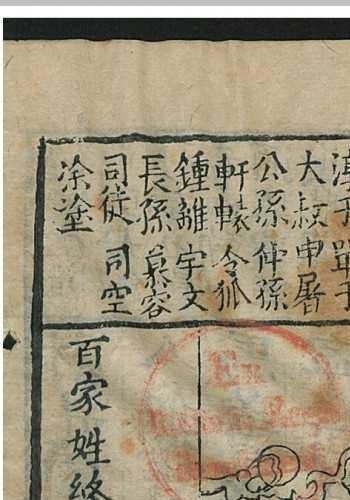 淳于 單于
大叔 申屠
公孫 仲孫
軒轅 令狐
鍾離 宇文
長孫 慕容
司徒 司空
涂塗
百家姓終
Ex